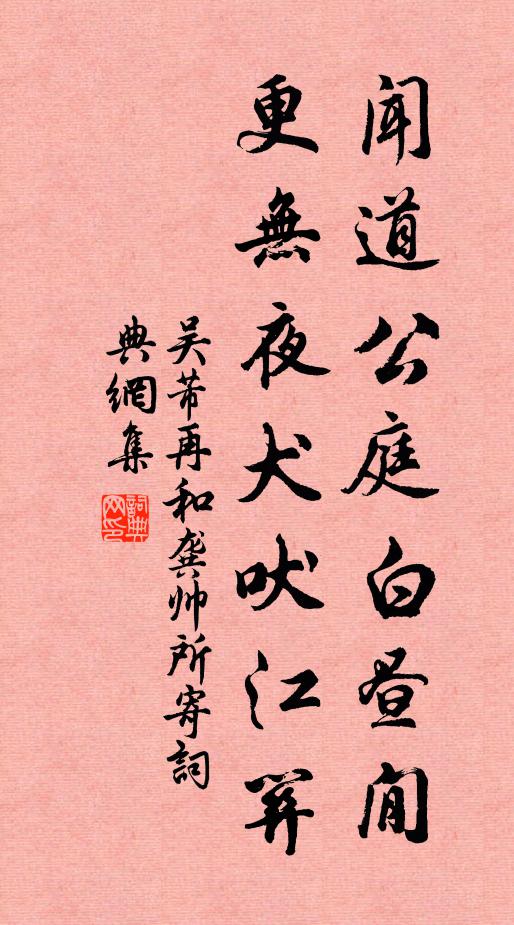 聞道公庭白昼閒
更無夜犬吠江關
吴芾再和龔帅所寄詞
典網集
詞典
网印